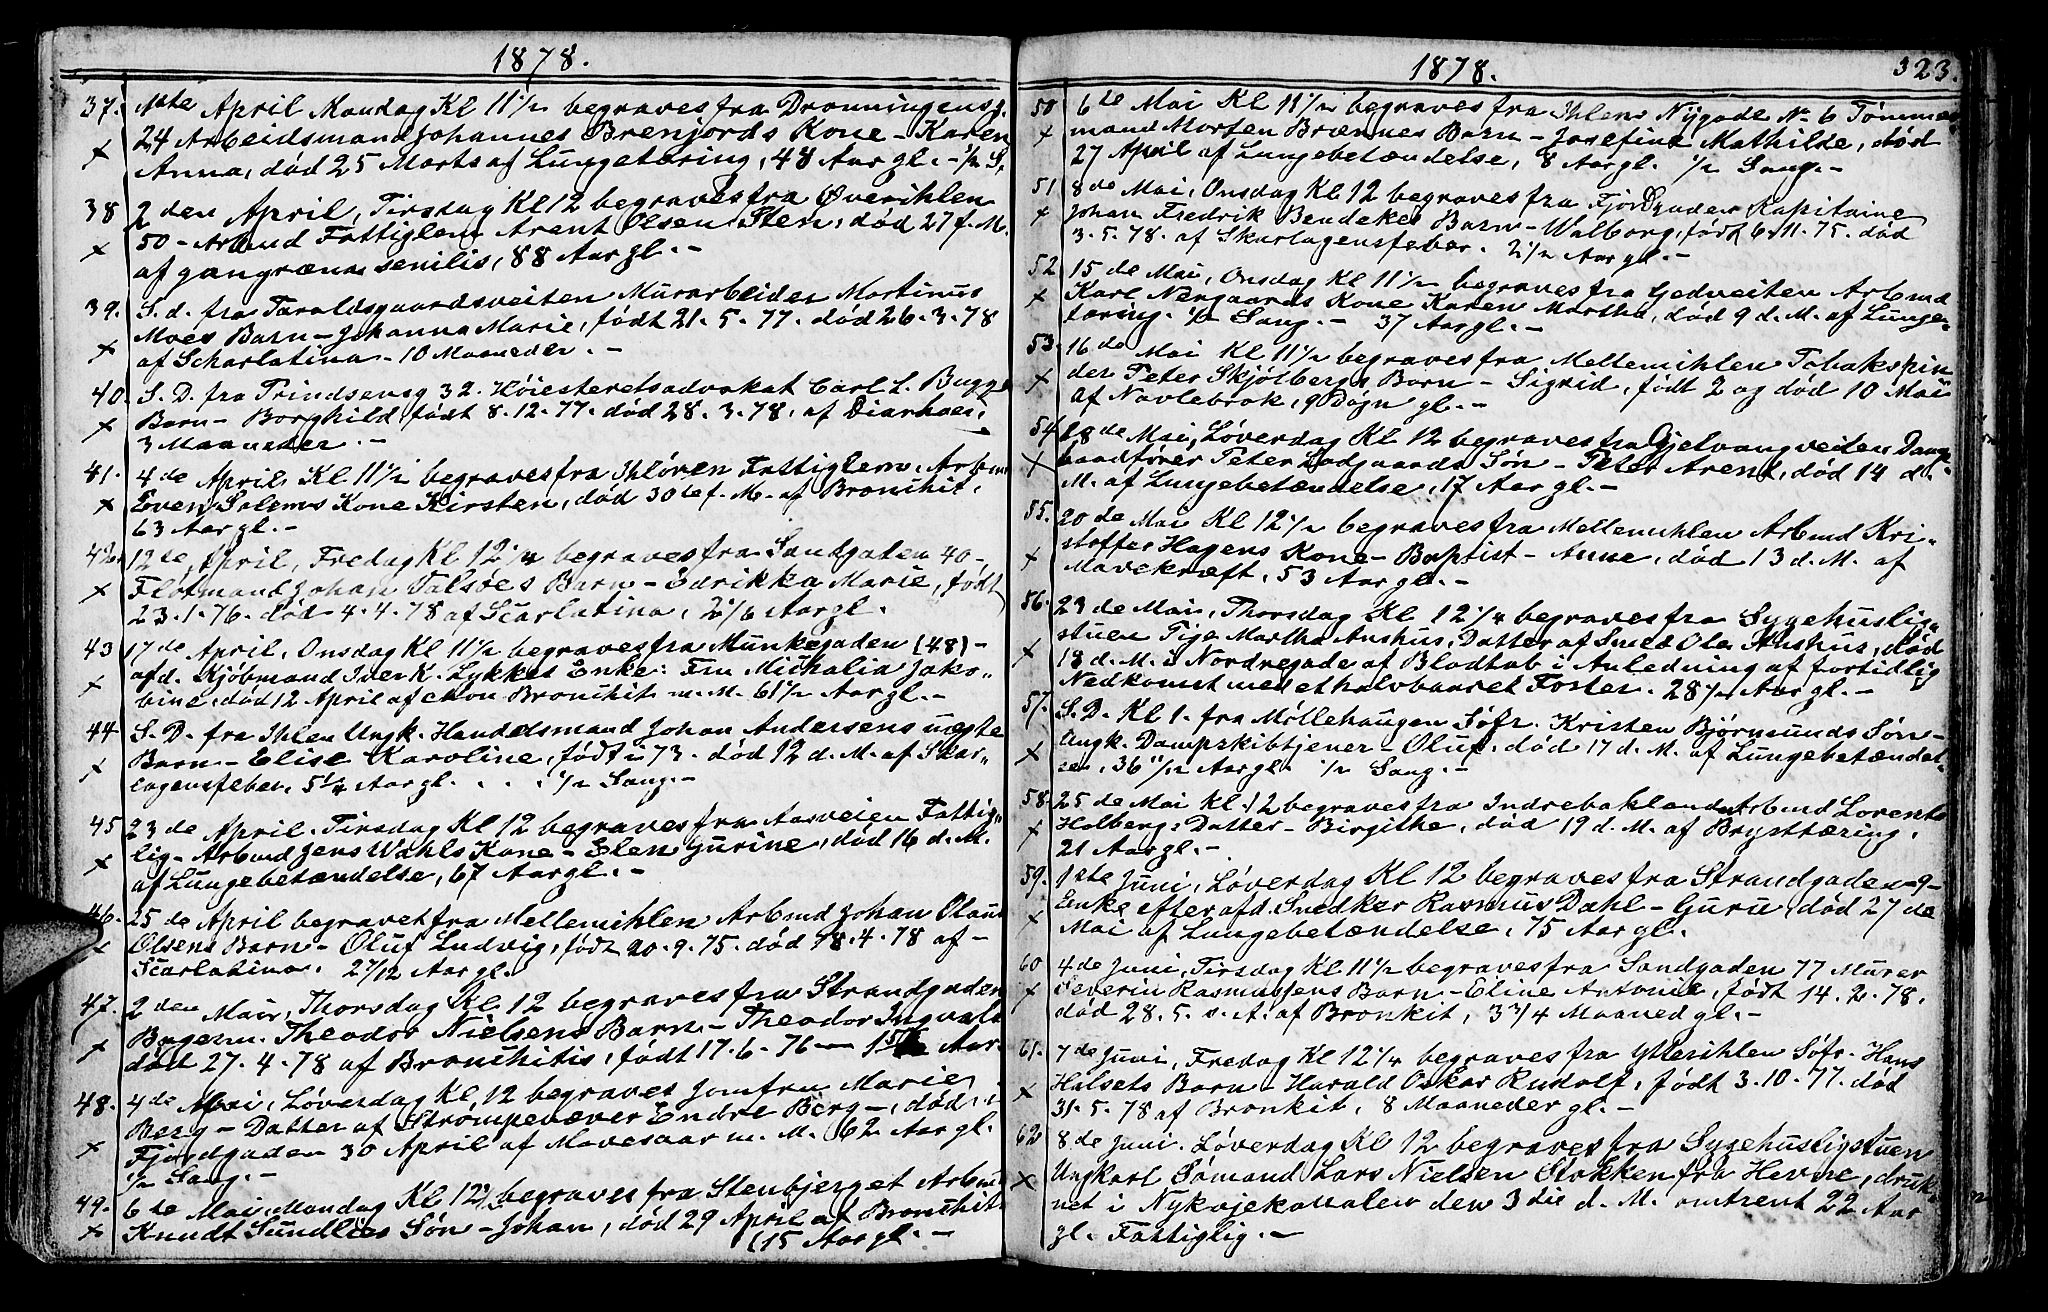 1878.
37. 1ste April Mandag Kl 11 1/2 begraves fra Dronningensg.
24 Arbeidsmand Johannes Brenjords Kone - Karen
x Anna, død 25 Marts af Lungetæring, 48 Aar gl. - 1/2 S.
38 2den April, Tirsdag Kl 12 begraves fra Øverihlen
50 - Arbmd Fattiglem Arent Olsen Sten, død 27 f. M.
x af gangræna senilis, 88 Aar gl. -
39. S. d. fra Taraldsgaardsveiten Murarbeider Martinus
Moes Barn - Johanna Marie, født 21. 5. 77. død 26. 3. 78
x af Scharlatina - 10 Maaneder. -
40. S. D. fra Prindsensg 32. Høiesteretsadvokat Carl L. Bugge
x Barn - Borghild, født 8. 12. 77. død 28. 3. 78. af Diarhoe,
3 Maaneder. -
41. 4de April Kl 11 1/2 begraves fra Ihløren Fattiglem, Arbmd
x Even Solems Kone Kirsten, død 30te f. M. af Bronchit,
63 Aar gl. -
42. 12te April, Fredag Kl 12 1/4 begraves fra Sandgaden 40 -
x Flotmand Johan Talsøes Barn - Edrikka Marie, født
23. 1. 76. død 4. 4. 78 af Scarlatina, 2 1/6 Aar gl.
43 17de April, Onsdag Kl 11 1/2 begraves fra Munkegaden (48) -
x afd. Kjøbmand Iver K. Lykkes Enke: Fru Michalia Jako-
bine, død 12 April af chron Bronchit m. M. 61 1/2 Aar gl. -
44 S. D. fra Ihlen Ungk. Handelsmand Johan Andersens uægte
x Barn - Elise Karoline, født i 73. død 12 d. M. af Skar-
lagensfeber, 5 1/4 Aar gl. . . . 1/2 Sang. -
45 23de April. Tirsdag Kl 12 begraves fra Aasveien Fattig-
x lig - Arbmd Jens Wahls Kone - Elen Gurine, død 16 d. M.
af Lungebetændelse, 67 Aar gl. -
46. 25de April begravet fra Mellemihlen Arbmd Johan Olaus
x Olsens Barn - Oluf Ludvig, født 20. 9. 75. død 18. 4. 78 af -
Scarlatina. 2 7/12 Aar gl.
47. 2den Mai, Thorsdag Kl 12 begraves fra Strandgaden
x Bagerm. Theodor Nielsens Barn - Theodor Ingvald
død 27. 4. 78 af Bronchitis, født 17. 6. 76 - Aar.
48. 4de Mai, Løverdag Kl. 12 begraves Jomfru Marie
x Berg - Datter af Strømpevæver Endre Berg -, død i
Fjordgaden 30 April af Mavesaar m. M. 62 Aar gl.
1/2 Sang. -
49. 6te Mai, Mandag Kl 12 1/2 begraves fra Stenbjerget Arbmd
x Knudt Sundlies Søn - Johan, død 29 April af Bronchit
(15 Aar gl. -
1878. 323.
50 6te Mai Kl 11 1/2 begraves fra Ihlens Nygade No 6 Tømmer-
x mand Morten Brænnes Barn - Josefine Mathilde, død
27 April af Lungebetændelse, 8 Aar gl. 1/2 Sang. -
51 8de Mai, Onsdag Kl 12 begraves fra Fjordgaden Kapitaine
x Johan Fredrik Bendekes Barn - Walborg, født 6. 11. 75. død
3. 5. 78. af Skarlagensfeber. 2 1/2 Aar gl. -
52. 15de Mai, Onsdag Kl 11 1/2 begraves fra Gedveiten Arbmd
x Karl Nergaards Kone Karen Martha, død 9 d. M. af Lunge-
tæring. 1/2 Sang. - 37 Aar gl. -
53. 16de Mai Kl 11 1/2 begraves fra Mellemihlen Tobakspin
x der Peter Skjølbergs Barn - Sigrid, født 2 og død 10 Mai
af Navlebrok, 9 Døgn gl. -
54 18de Mai, Løverdag Kl 12 begraves fra Gjelvangveiten Damp-
x baadfører Peter Lodgaards Søn - Peter Arent, død 14 d.
M. af Lungebetændelse, 17 Aar gl. -
55. 20de Mai Kl 12 1/2 begraves fra Mellemihlen Arbmd Kri-
x stoffer Hagens Kone - Baptist - Anne, død 13 d. M. af
Mavekræft, 53 Aar gl. -
56. 23de Mai, Thorsdag Kl 12 1/4 begraves fra Sygehuslig-
stuen Pige Martha Aushus, Datter af Smed Ole Aushus, død
x 18 d. M. i Nordregade af Blodtab i Anledning af fortidlig
Nedkomst med et halvbaaret Foster. 28 1/2 Aar gl. -
57. S. D. Kl 1. fra Møllehaugen Søfr. Kristen Bjørnsunds Søn -
x Ungk. Dampskibtjener - Oluf, død 17 d. M. af Lungebetændel-
se, 36 11/12 Aar gl. 1/2 Sang. -
58. 25de Mai Kl 12 begraves fra Indrebaklandet Arbmd Lorents
x Holbergs Datter - Birgithe, død 19 d. M. af Brysttæring,
21 Aar gl. -
59. 1ste Juni, Løverdag Kl 12 begraves fra Strandgaden 9 -
Enke efter afd. Snedker Rasmus Dahl - Guru, død 27de
x Mai af Lungebetændelse, 75 Aar gl.
60 4de Juni, Tirsdag Kl 11 1/2 begraves fra Sandgaden 77 Murer
x Severin Rasmussens Barn - Eline Antonie, født 14. 2. 78.
død 28. 5. s. A. af Bronkit, 3 3/4 Maaned gl. -
61. 7de Juni, Fredag Kl 12 1/4 begraves fra Ytterihlen Søfr. Hans
x Halsets Barn - Harald Oskar Rudolf, født 3. 10. 77. død
31. 5. 78 af Bronkit, 8 Maaneder gl. -
62 8de Juni. Løverdag Kl 12 begraves fra Sygehusligstuen
x Ungkarl Sømand Lars Nielsen Stokken fra Hevne, druk-
net i Nykøjekanalen den 3die d. M. omtrent 22 Aar
gl. Fattiglig. -